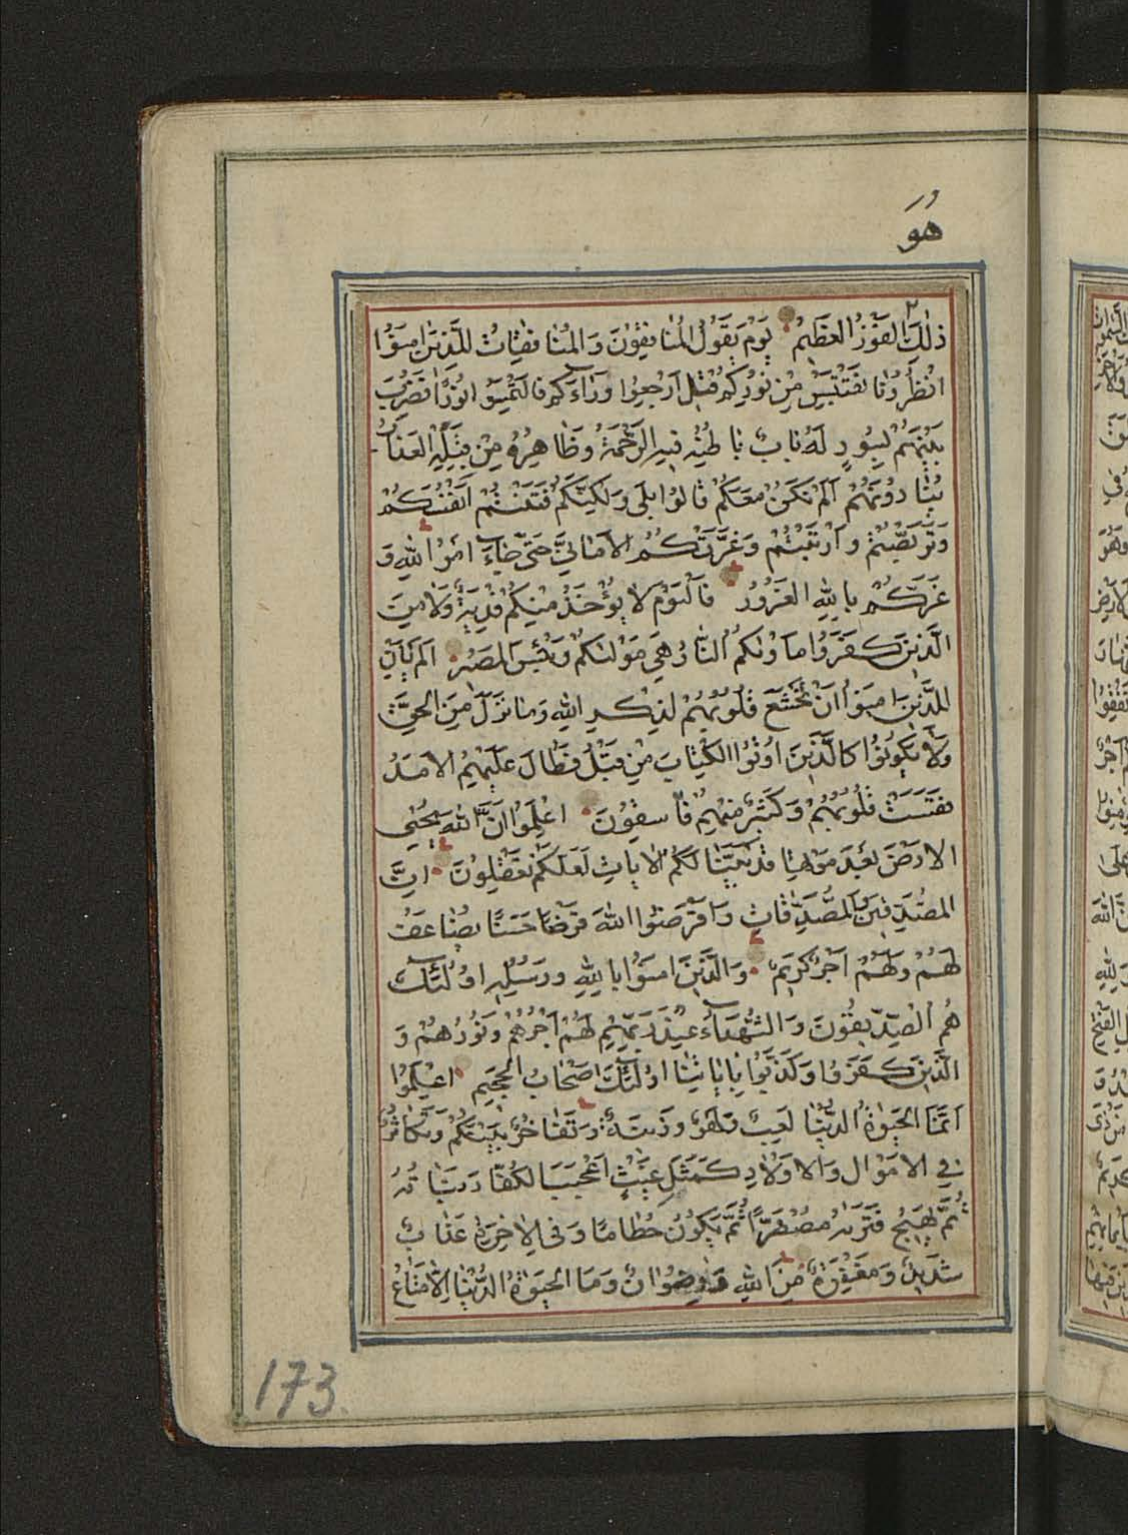 هُوَ
ذٰلِكَ الفَوْزُ العَظِيمُ يَوْمَ يَقُولُ المُنٰافِقُونَ وَالمُنٰافِقٰاتُ لِلَّذِينَ اٰمَنُوا
انْظُرُونٰا نَقْتَبِسْ مِنْ نُورِكُمْ قِيْلَ ارْجِعُوا وَرٰآءَكُمْ فَالْتَمِسُوا نُورًا فَضُرِبَ
بَيْنَهُمْ بِسُورٍ لَهُ بٰابٌ بٰاطِنُهُ فِيهِ الرَّحْمَةُ وَظٰاهِرُهُ مِنْ قِبَلِهِ العَذٰابُ
يُنٰادُونَهُمْ اَلَمْ نَكُنْ مَعَكُمْ قٰالُوا بَلٰى وَلٰكِنَّكُمْ فَتَنْتُمْ اَنْفُسَكُمْ
وَتَرَبَّصْتُمْ وَارْتَبْتُمْ وَغَرَّتْكُمُ الاَمٰانِيُّ حَتّٰى جٰآءَ اَمْرُ اللهِ وَ
غَرَّكُمْ بِاللهِ الغَرُورُ فَالْيَوْمَ لاٰ يُؤْخَذُ مِنْكُمْ فِدْيَةٌ وَلاٰ مِنَ
الَّذِينَ كَفَرُوا مَاْوٰىكُمُ النّٰارُ هِيَ مَوْلٰىكُمْ وَبِئْسَ المَصِيرُ اَلَمْ يَأْنِ
لِلَّذِينَ اٰمَنُوا اَنْ تَخْشَعَ قُلُوبُهُمْ لِذِكْرِ اللهِ وَمٰا نَزَلَ مِنَ الحَقِّ
وَلاٰ يَكُونُوا كَالَّذِينَ اُوتُوا الكِتٰابَ مِنْ قَبْلُ فَطٰالَ عَلَيْهِمُ الاَمَدُ
فَقَسَتْ قُلُوبُهُمْ وَكَثِيرٌ مِنْهُمْ فٰاسِقُونَ اعْلَمُوا اَنَّ اللهَ يُحْيِي
الاَرْضَ بَعْدَ مَوْتِهٰا قَدْ بَيَّنّٰا لَكُمُ الاٰيٰاتِ لَعَلَّكُمْ تَعْقِلُونَ اِنَّ
المُصَّدِّقِينَ وَالمُصَّدِّقٰاتِ وَاَقْرَضُوا اللهَ قَرْضًا حَسَنًا يُضٰاعَفُ
لَهُمْ وَلَهُمْ اَجْرٌ كَرِيمٌ وَالَّذِينَ اٰمَنُوا بِاللهِ وَرُسُلِهِ اُولٰئِكَ
هُمُ الصِّدِّيقُونَ وَالشُّهَدٰآءُ عِنْدَ رَبِّهِمْ لَهُمْ اَجْرُهُمْ وَنُورُهُمْ وَ
الَّذِينَ كَفَرُوا وَكَذَّبُوا بِاٰيٰاتِنٰا اُولٰئِكَ اَصْحٰابُ الجَحِيمِ اعْلَمُوا
اَنَّمَا الحَيٰوةُ الدُّنْيٰا لَعِبٌ وَلَهْوٌ وَزِينَةٌ وَتَفٰاخُرٌ بَيْنَكُمْ وَتَكٰاثُرٌ
فِي الاَمْوٰالِ وَالاَوْلاٰدِ كَمَثَلِ غَيْثٍ اَعْجَبَ الكُفّٰارَ نَبٰاتُهُ
ثُمَّ يَهِيجُ فَتَرٰىهُ مُصْفَرًّا ثُمَّ يَكُونُ حُطٰامًا وَفِي الاٰخِرَةِ عَذٰابٌ
شَدِيدٌ وَمَغْفِرَةٌ مِنَ اللهِ وَرِضْوٰانٌ وَمَا الحَيٰوةُ الدُّنْيٰا اِلاّٰ مَتٰاعُ
173.